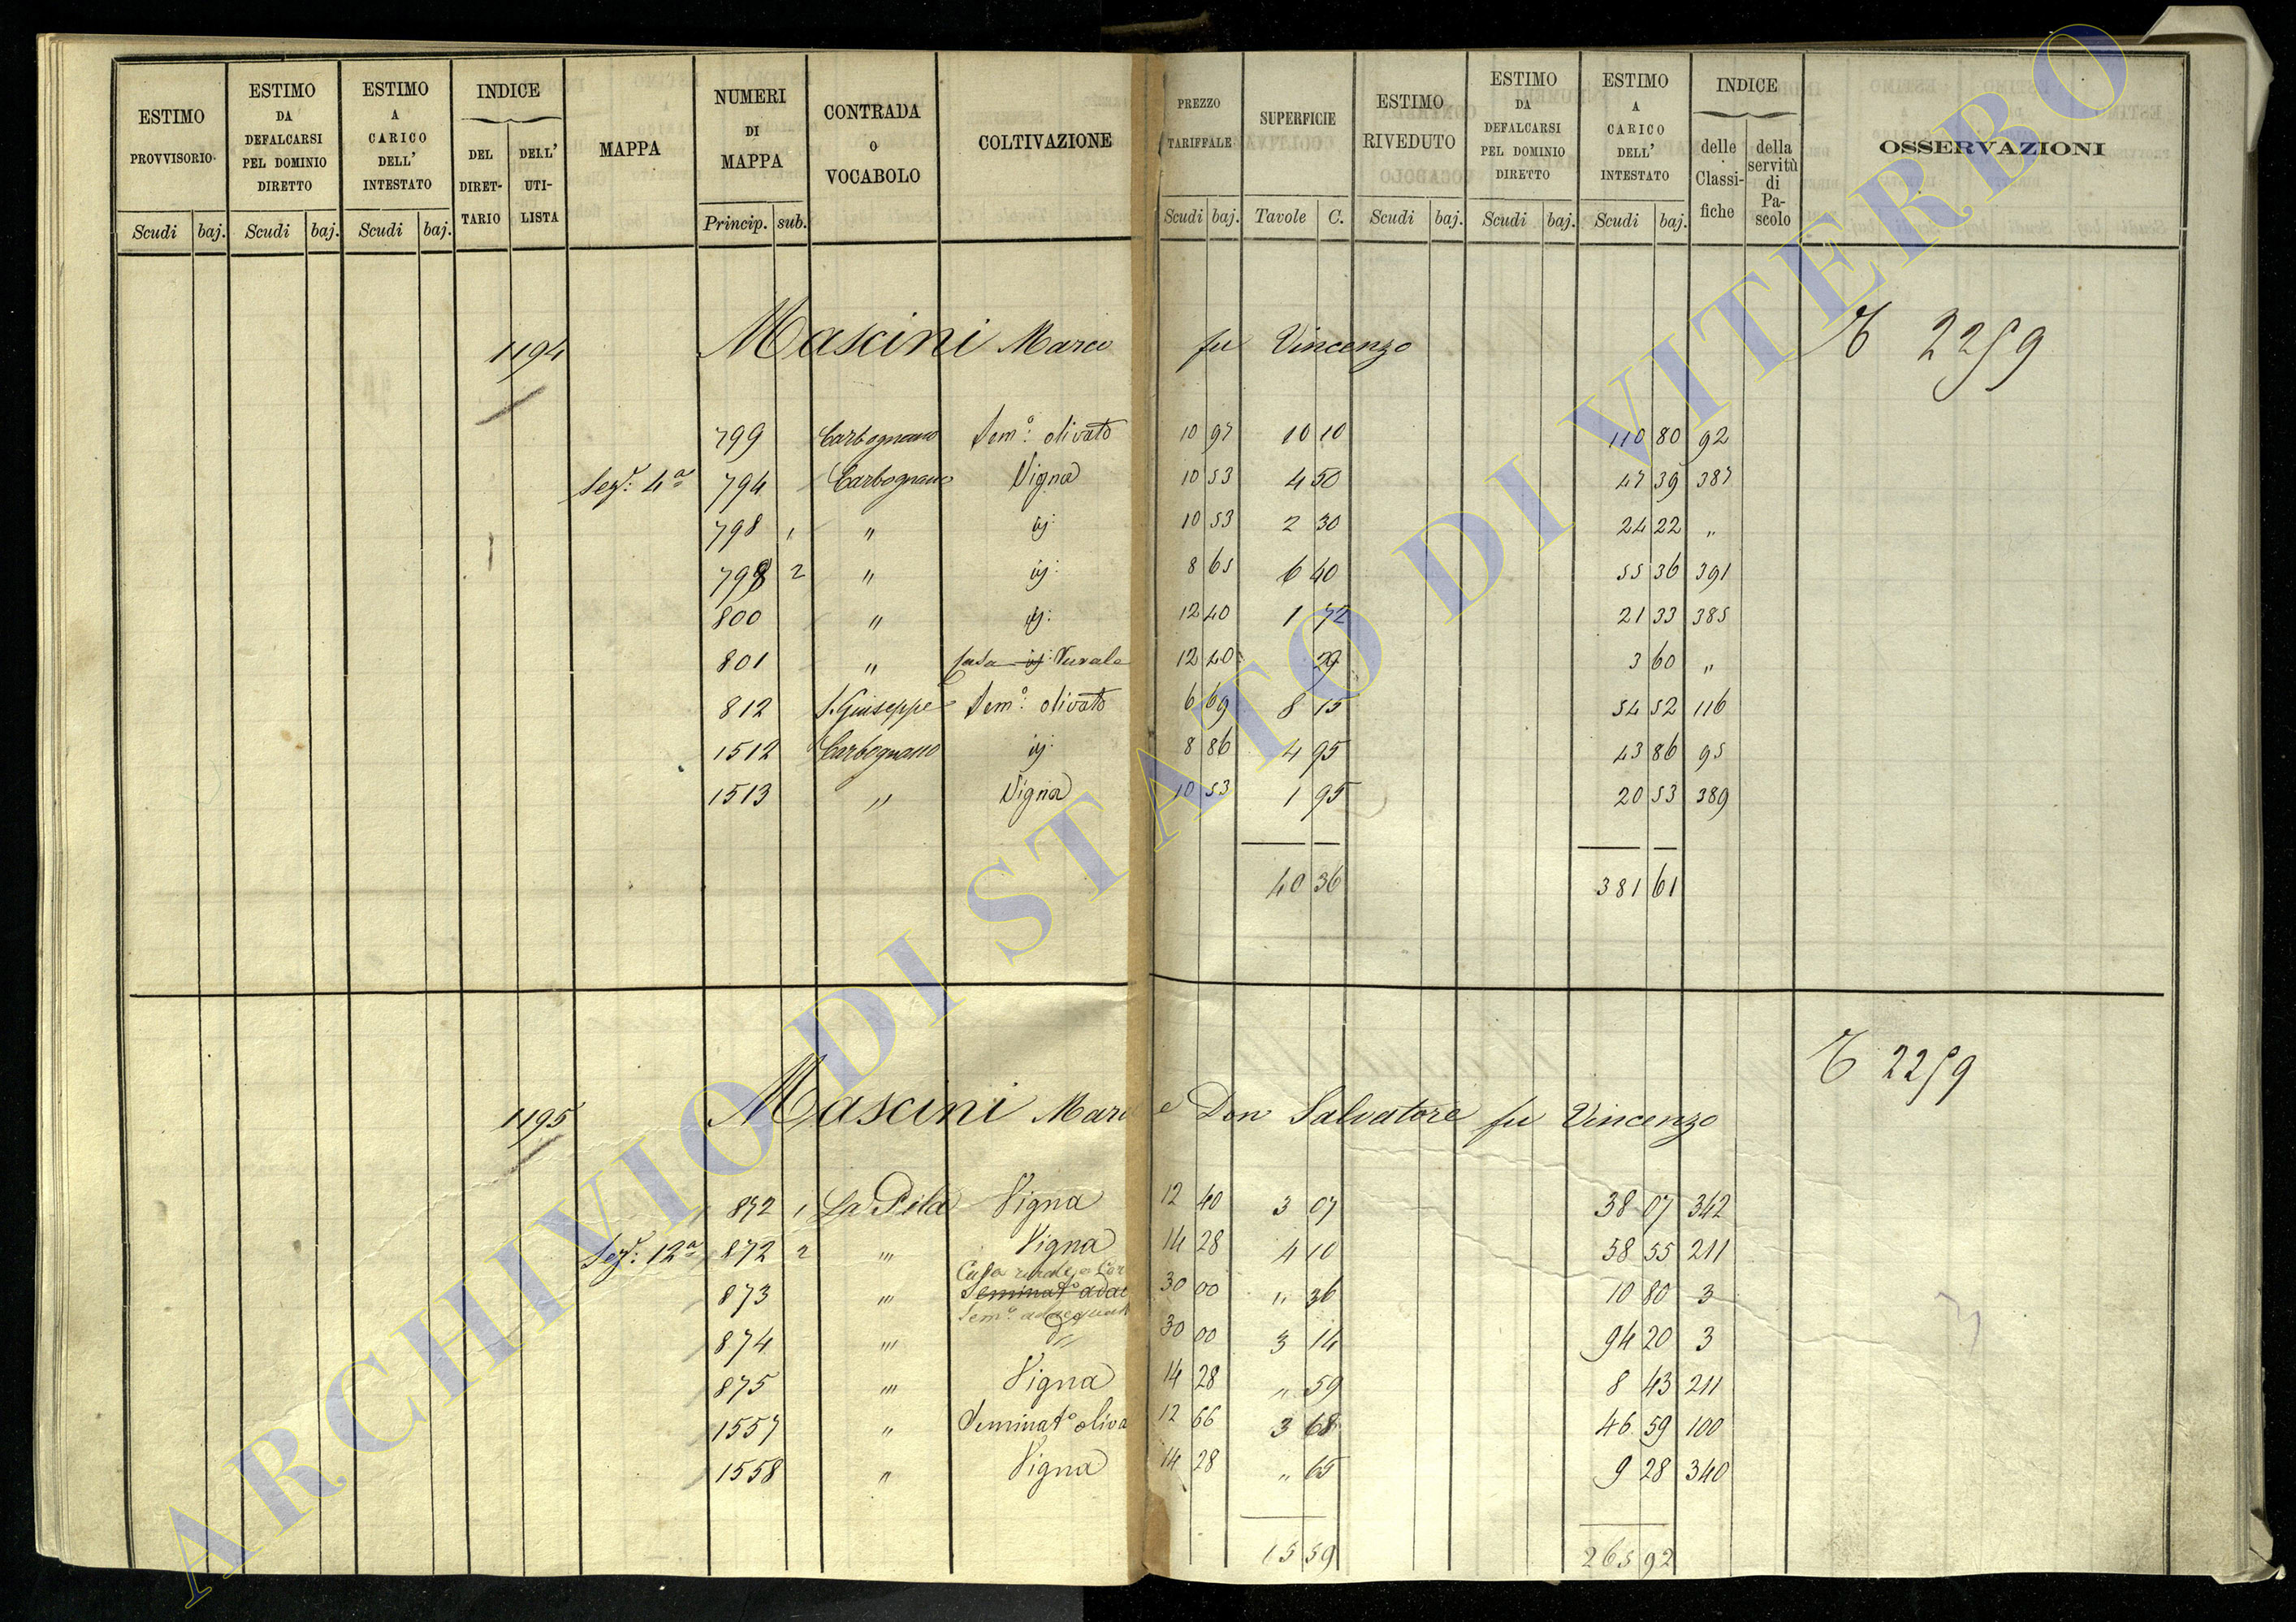 ESTIMO PROVVISORIO | ESTIMO DA DEFALCARSI PEL DOMINIO DIRETTO | ESTIMO A CARICO DELL' INTESTATO | INDICE DEL DIRET-TARIO | DELL' UTI-LISTA | MAPPA | NUMERI DI MAPPA | CONTRADA O VOCABOLO | COLTIVAZIONE | PREZZO TARIFFALE | SUPERFICIE | ESTIMO RIVEDUTO | ESTIMO DA DEFALCARSI PEL DOMINIO DIRETTO | ESTIMO A CARICO DELL' INTESTATO | INDICE delle Classi-fiche | della servitù di Pa-scolo | OSSERVAZIONI
Scudi baj. Scudi baj. Scudi baj. Princip. sub. Scudi baj. Tavole C. Scudi baj. Scudi baj. Scudi baj.
1194 Mascini Marco fu Vincenzo 2259
799 Carbognano Sem.º olivato 10 97 10 10 110 80 92
Sez.: 4ª 794 Carbognano Vigna 10 53 4 50 47 39 387
798 1 " ij: 10 53 2 30 24 22 "
798 2 " ij: 8 65 6 40 55 36 391
800 " ij: 12 40 1 72 21 33 385
801 " Casa ij: Rurale 12 40 29 3 60 "
812 S. Giuseppe Sem.º olivato 6 69 8 15 54 52 116
1512 Carbognano ij: 8 86 4 95 43 86 95
1513 " Vigna 10 53 1 95 20 53 389
40 36 381 61
2259
1195 Mascini Marco e Don Salvatore fu Vincenzo
872 1 La Pila Vigna 12 40 3 07 38 07 342
Sez.: 12ª 872 2 " Vigna 14 28 4 10 58 55 211
Casa rurale e Cor
873 " Seminatº adac 30 00 " 36 10 80 3
Sem.º adacquat
874 " 30 00 3 14 94 20 3
875 " Vigna 14 28 " 59 8 43 211
1557 " Seminatº oliva 12 66 3 68 46 59 100
1558 " Vigna 14 28 " 65 9 28 340
15 59 265 92
ARCHIVIO DI STATO DI VITERBO